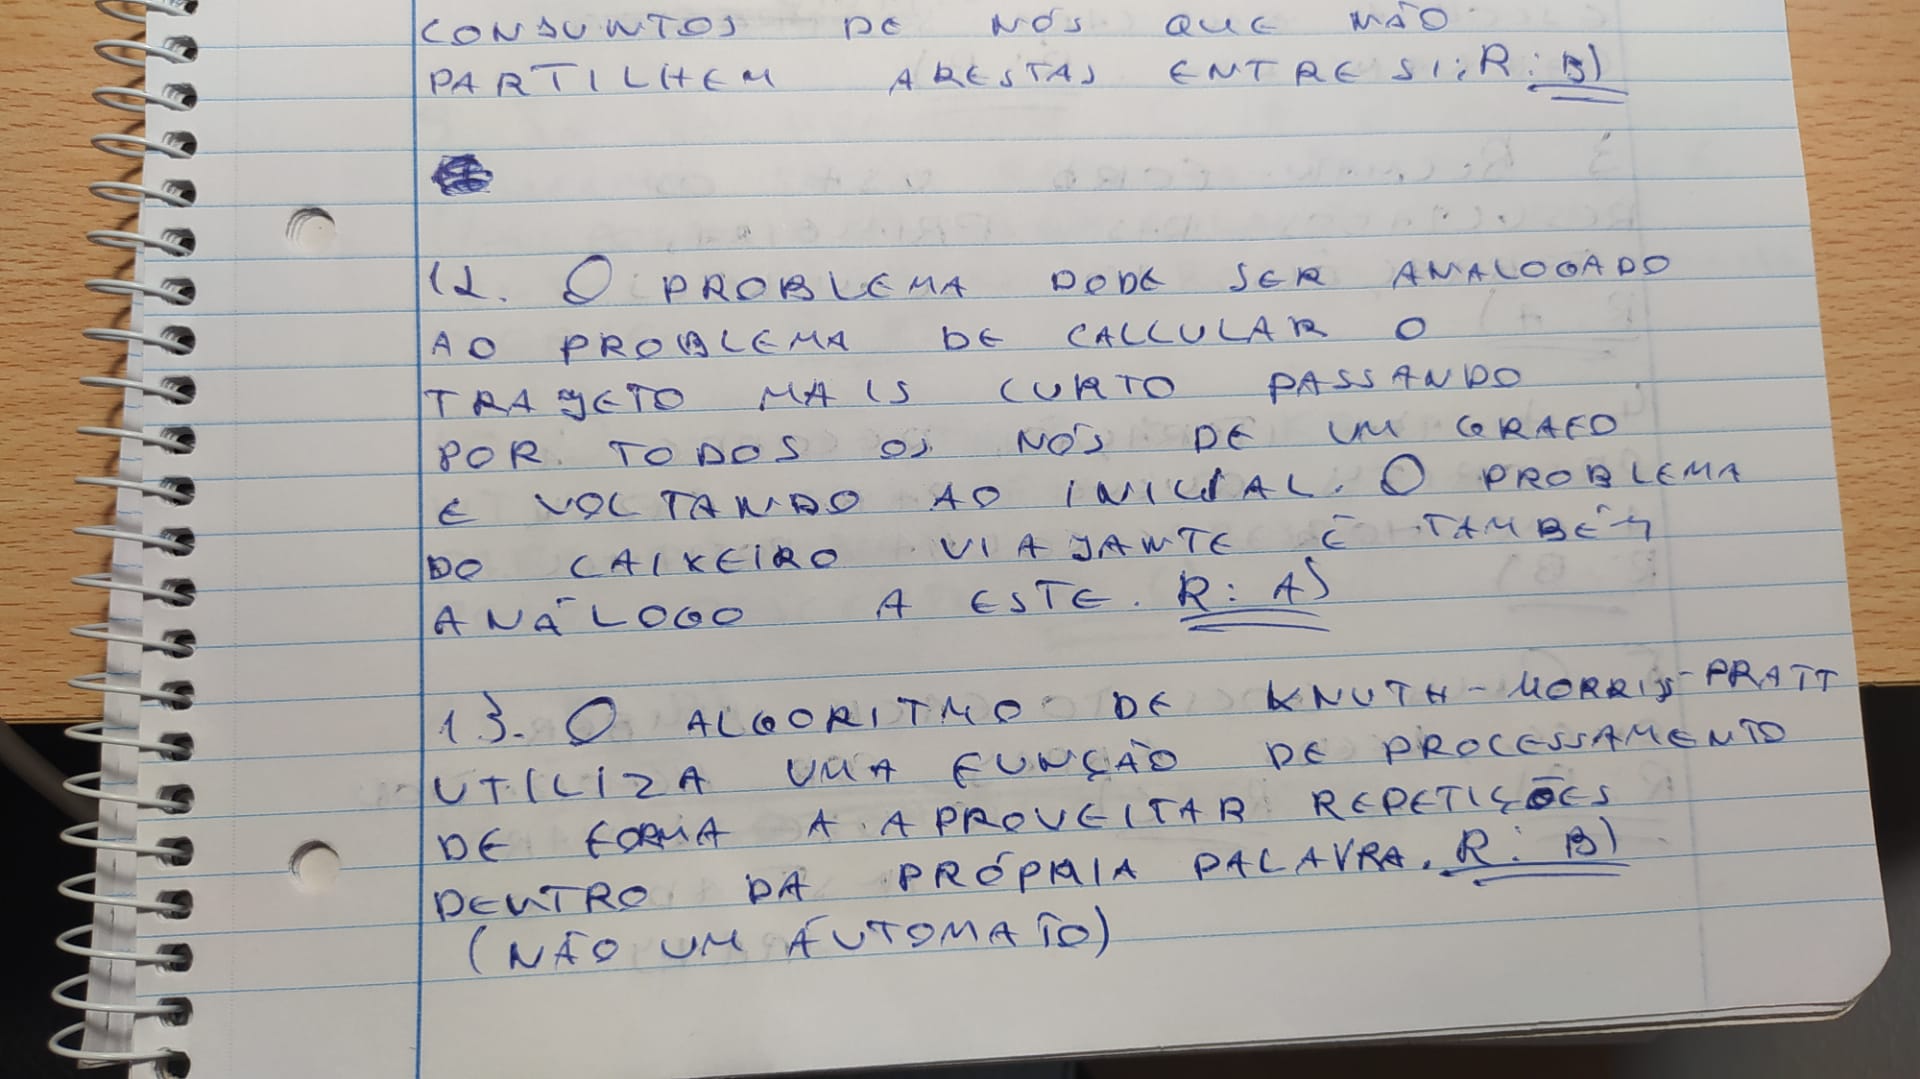 CONJUNTOS DE NÓS QUE NÃO
PARTILHEM ARESTAS ENTRE SI; R: B)
12. O PROBLEMA PODE SER ANALOGADO
AO PROBLEMA DE CALCULAR O
TRAJETO MAIS CURTO PASSANDO
POR TODOS OS NÓS DE UM GRAFO
E VOLTANDO AO INICIAL. O PROBLEMA
DO CAIXEIRO VIAJANTE É TAMBÉM
ANÁLOGO A ESTE. R: A)
13. O ALGORITMO DE KNUTH-MORRIS-PRATT
UTILIZA UMA FUNÇÃO DE PROCESSAMENTO
DE FORMA A APROVEITAR REPETIÇÕES
DENTRO DA PRÓPRIA PALAVRA. R: B)
(NÃO UM ÁUTOMATO)